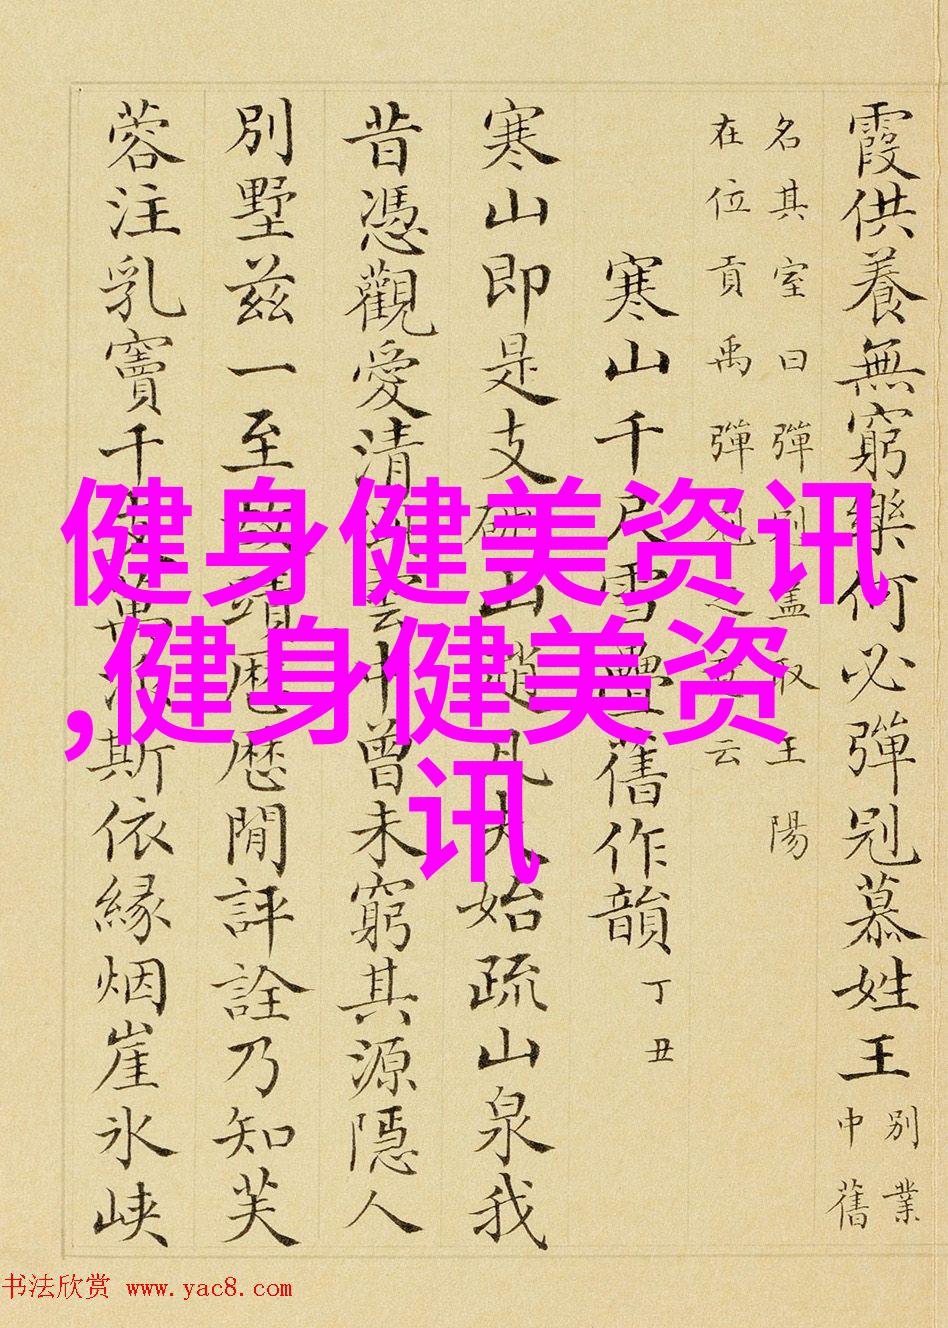 霞供養無窮樂何必彈冠慕姓王
別業
中舊
名其室曰彈冠蓋取王陽
在位貢禹彈冠之意云
寒山千尺雪疊舊作韻
丁丑
寒山即是支硎山趙凡夫始疏山泉我
昔憑觀愛清閟雲中曾未窮其源隱人
別墅茲一至靖歷歷閒評詮乃知芙
蓉注乳竇千支萬派斯依緣烟崖氷峡
健身健美资讯
,健身健美资
讯
书法欣赏 www.yac8.com